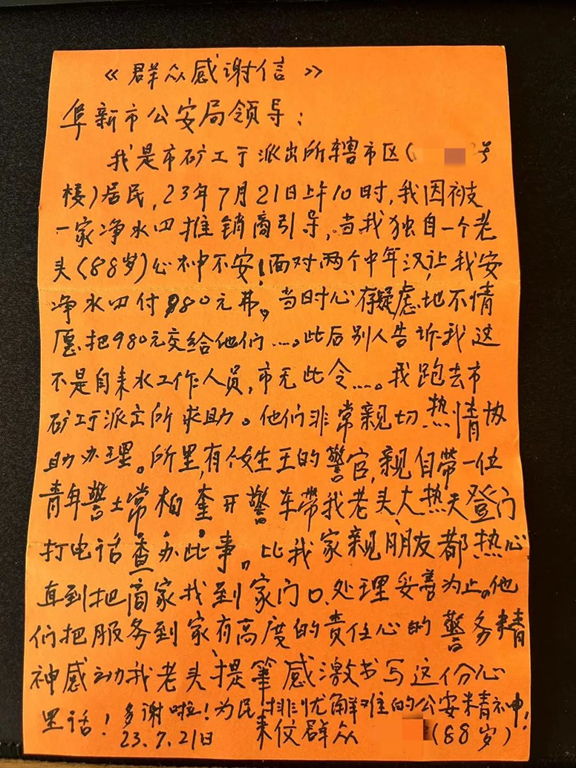 《群众感谢信》
阜新市公安局领导：
我是市矿工于派出所辖市区（ 号
楼）居民，23年7月21日上午10时，我因被
一家净水四推销商引导，当我独自一个老
头（88岁）心神不安！面对两个中年汉，让我安
净水四付980元弗。当时心存疑虑地不情
愿把980元交给他们……。此后别人告诉我这
不是自来水工作人员，市无此令……。我跑去市
矿工于派出所求助。他们非常亲切、热情协
助办理。所里，有个姓王的警官，亲自带一位
青年警士常柏奎开警车带我老头大热天登门
打电话查办此事。比我家亲朋友都热心
直到把商家找到家门口、处理妥善为止。他
们把服务到家有高度的责任心的警务精
神感动我老头提笔感激书写这份心
里话！多谢啦！为民排忧解难的公安精神！
23.7.21日 来仪群众 （88岁）